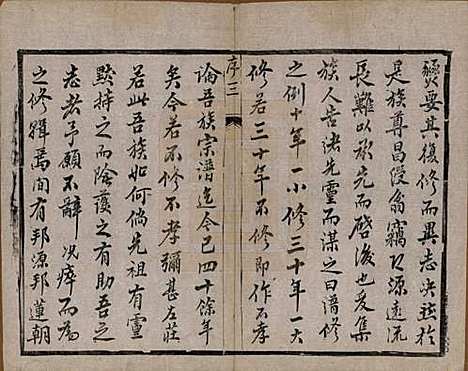 要其復修而異志決強於
是族尊昌段翁竊以源遠流
長難以承先而啓後也爰集
族人告諸先靈而謀之曰譜修
之例十年一小修三十年一大
修若三十年不修即作不孝
序 三
論吾族宗譜迄今已四十餘年
矣今若不修不孝彌甚左莊
若此吾族如何倘先祖有靈
默持之而陰護之有助吾之
志者予願不辭况瘁而為
之修輯焉間有邦源邦蓮朝